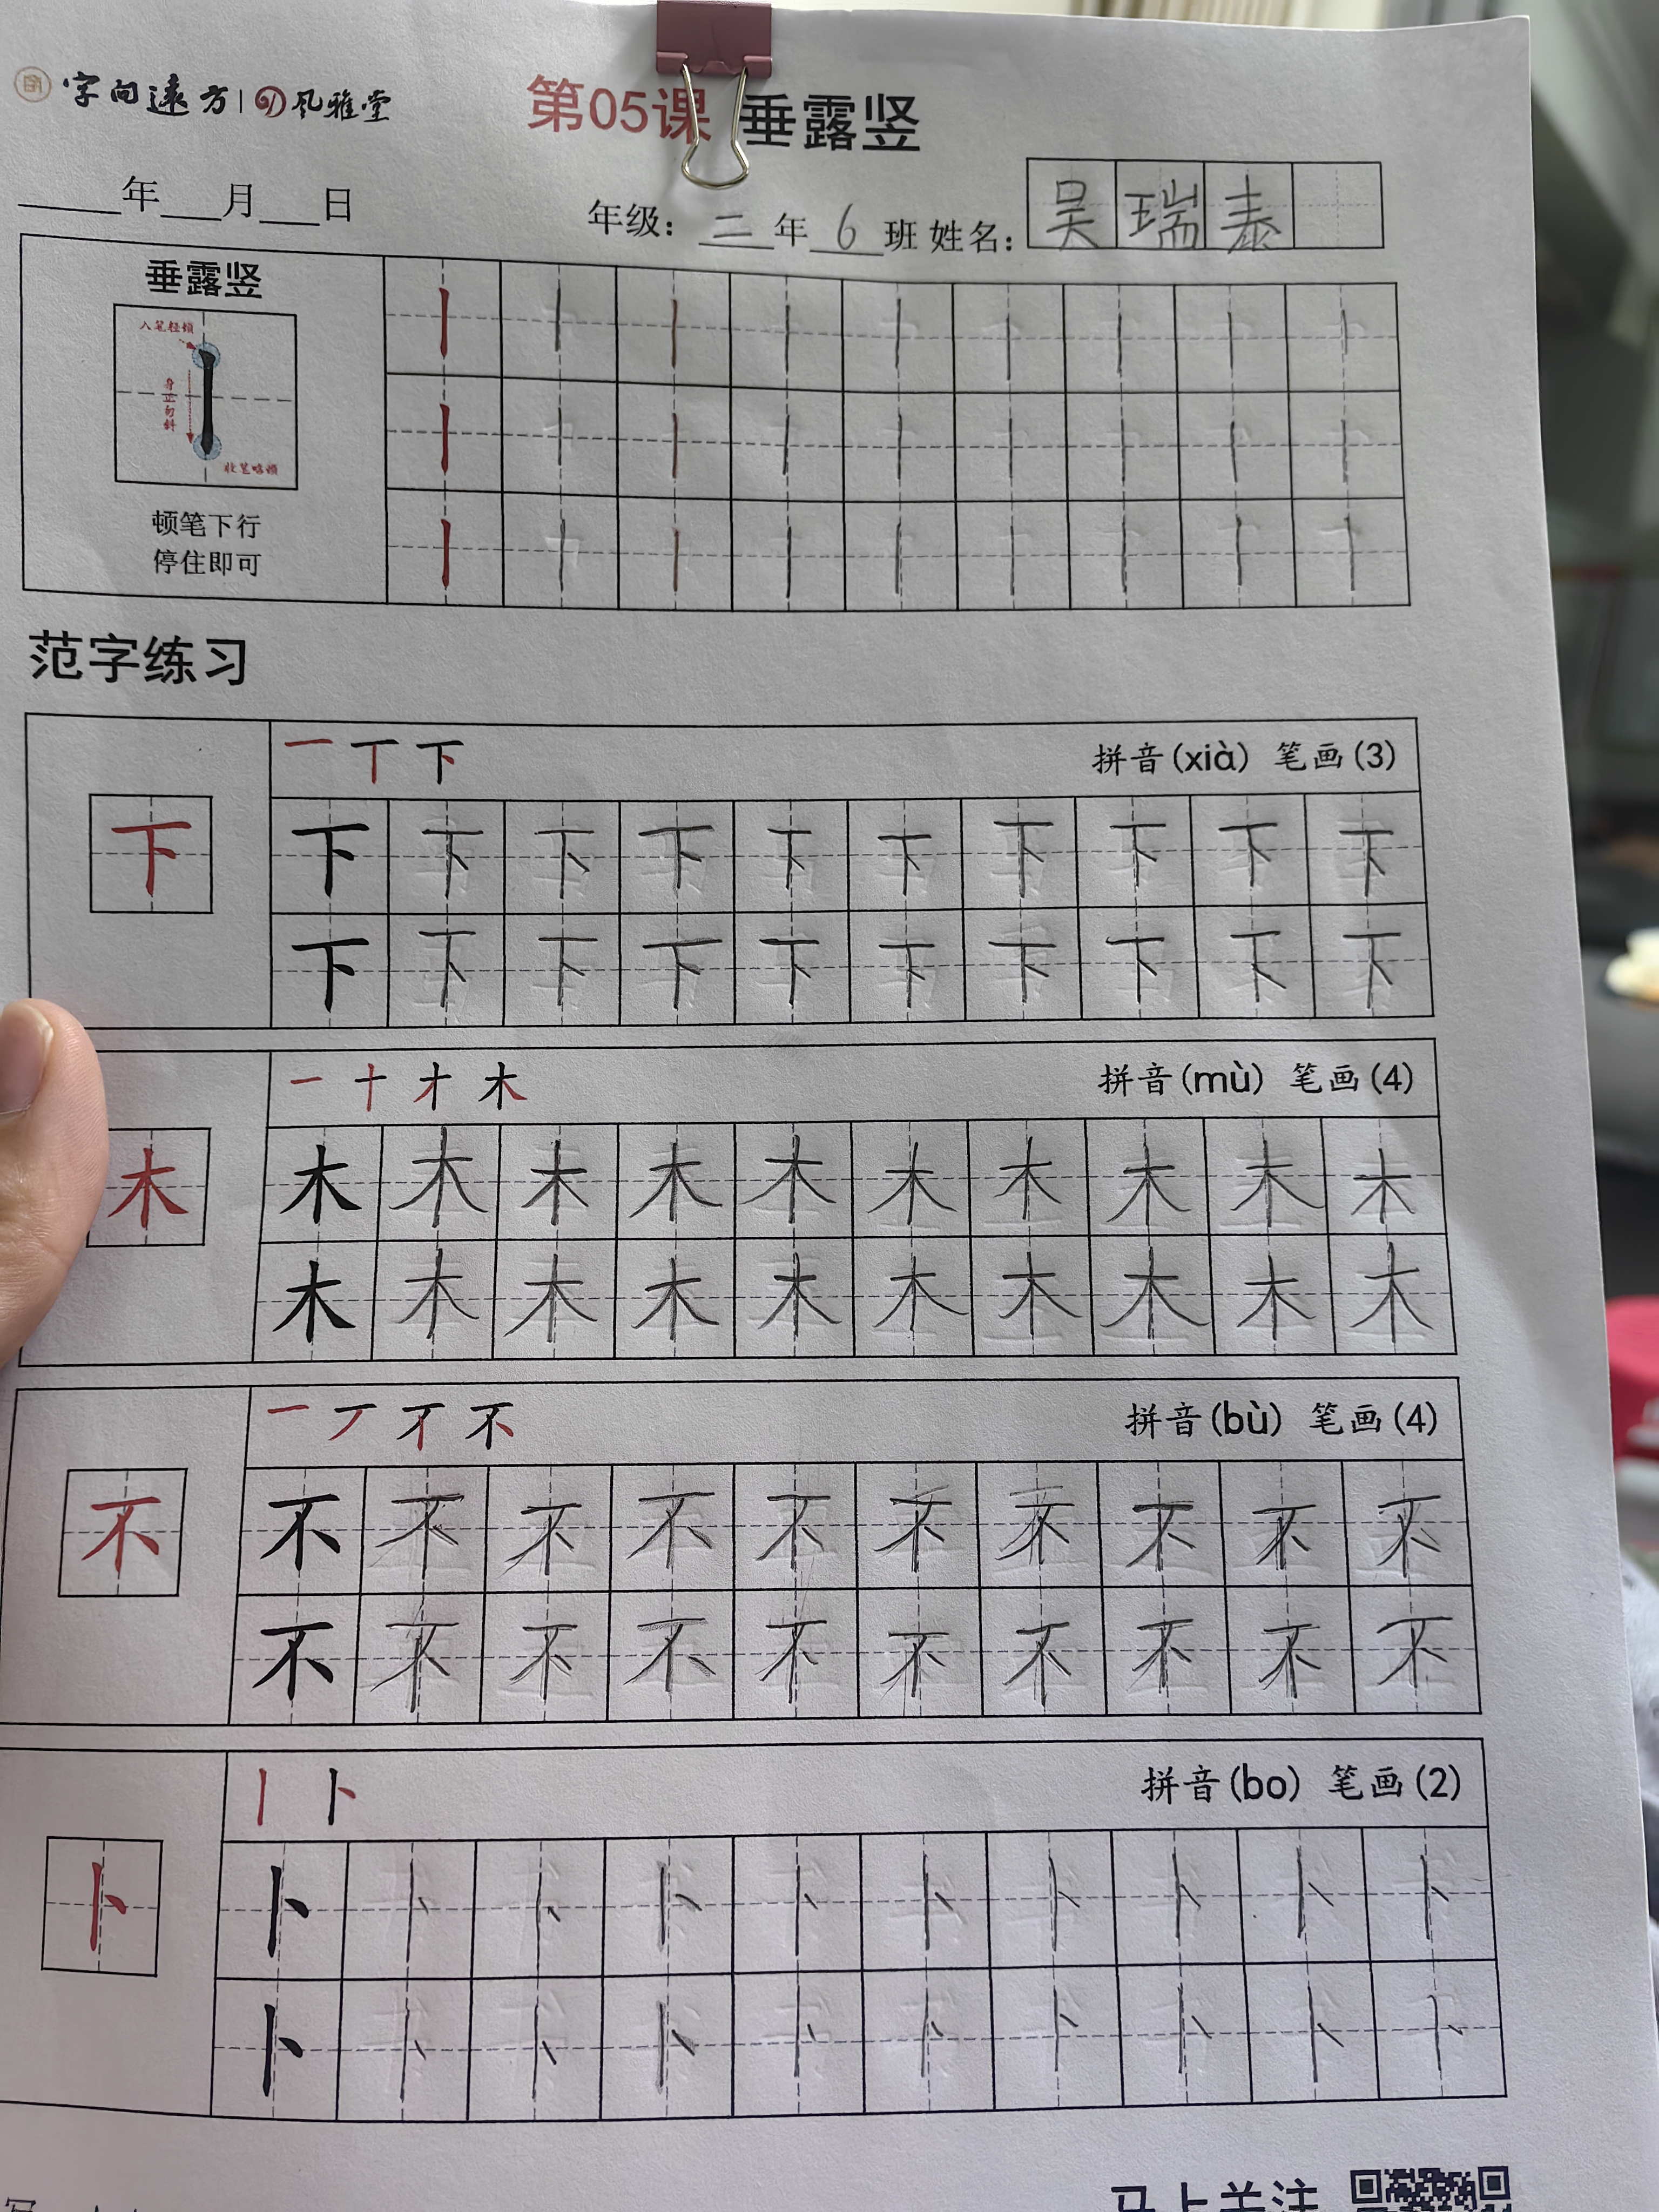 字向遠方 风雅堂
第05课 垂露竖
年 月 日
年级：二年6班 姓名：吴瑞泰
垂露竖
入笔轻顿
身正勿斜
收笔略顿
顿笔下行
停住即可
丨 丨 丨 丨 丨 丨 丨 丨 丨
丨 丨 丨 丨 丨 丨 丨 丨 丨
丨 丨 丨 丨 丨 丨 丨 丨 丨
范字练习
一 丅 下 拼音(xià) 笔画(3)
下
下 下 下 下 下 下 下 下 下 下
下 下 下 下 下 下 下 下 下 下
一 十 才 木 拼音(mù) 笔画(4)
木
木 木 木 木 木 木 木 木 木 木
木 木 木 木 木 木 木 木 木 木
一 丆 不 不 拼音(bù) 笔画(4)
不
不 不 不 不 不 不 不 不 不 不
不 不 不 不 不 不 不 不 不 不
丨 卜 拼音(bo) 笔画(2)
卜
卜 卜 卜 卜 卜 卜 卜 卜 卜 卜
卜 卜 卜 卜 卜 卜 卜 卜 卜 卜
马上关注